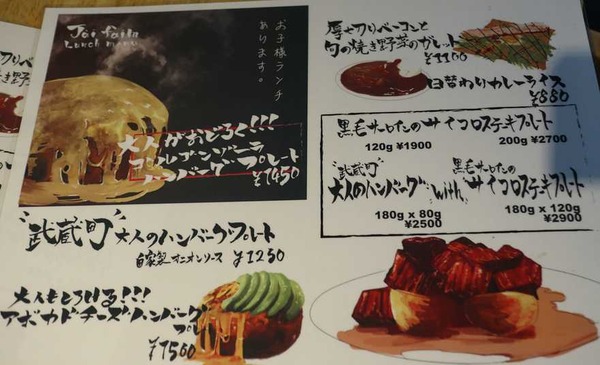 Joi faiM
Lunch menu
お子様ランチ
あります。
大人がおどろく!!!
ゴルゴンゾーラ
ハンバーグプレート
¥1450
"武蔵町"大人のハンバーグプレート
自家製オニオンソース ¥1250
大人もとろける!!!
アボカドチーズハンバーグ
プレ
¥1500
厚切りベーコンと
旬の焼き野菜のガレット
¥1100
日替わりカレーライス
¥880
黒毛サーロインのサイコロステーキプレート
120g ¥1900 200g ¥2700
"武蔵町" 黒毛サーロインの
大人のハンバーグ with サイコロステーキプレート
180g x 80g 180g x 120g
¥2500 ¥2900